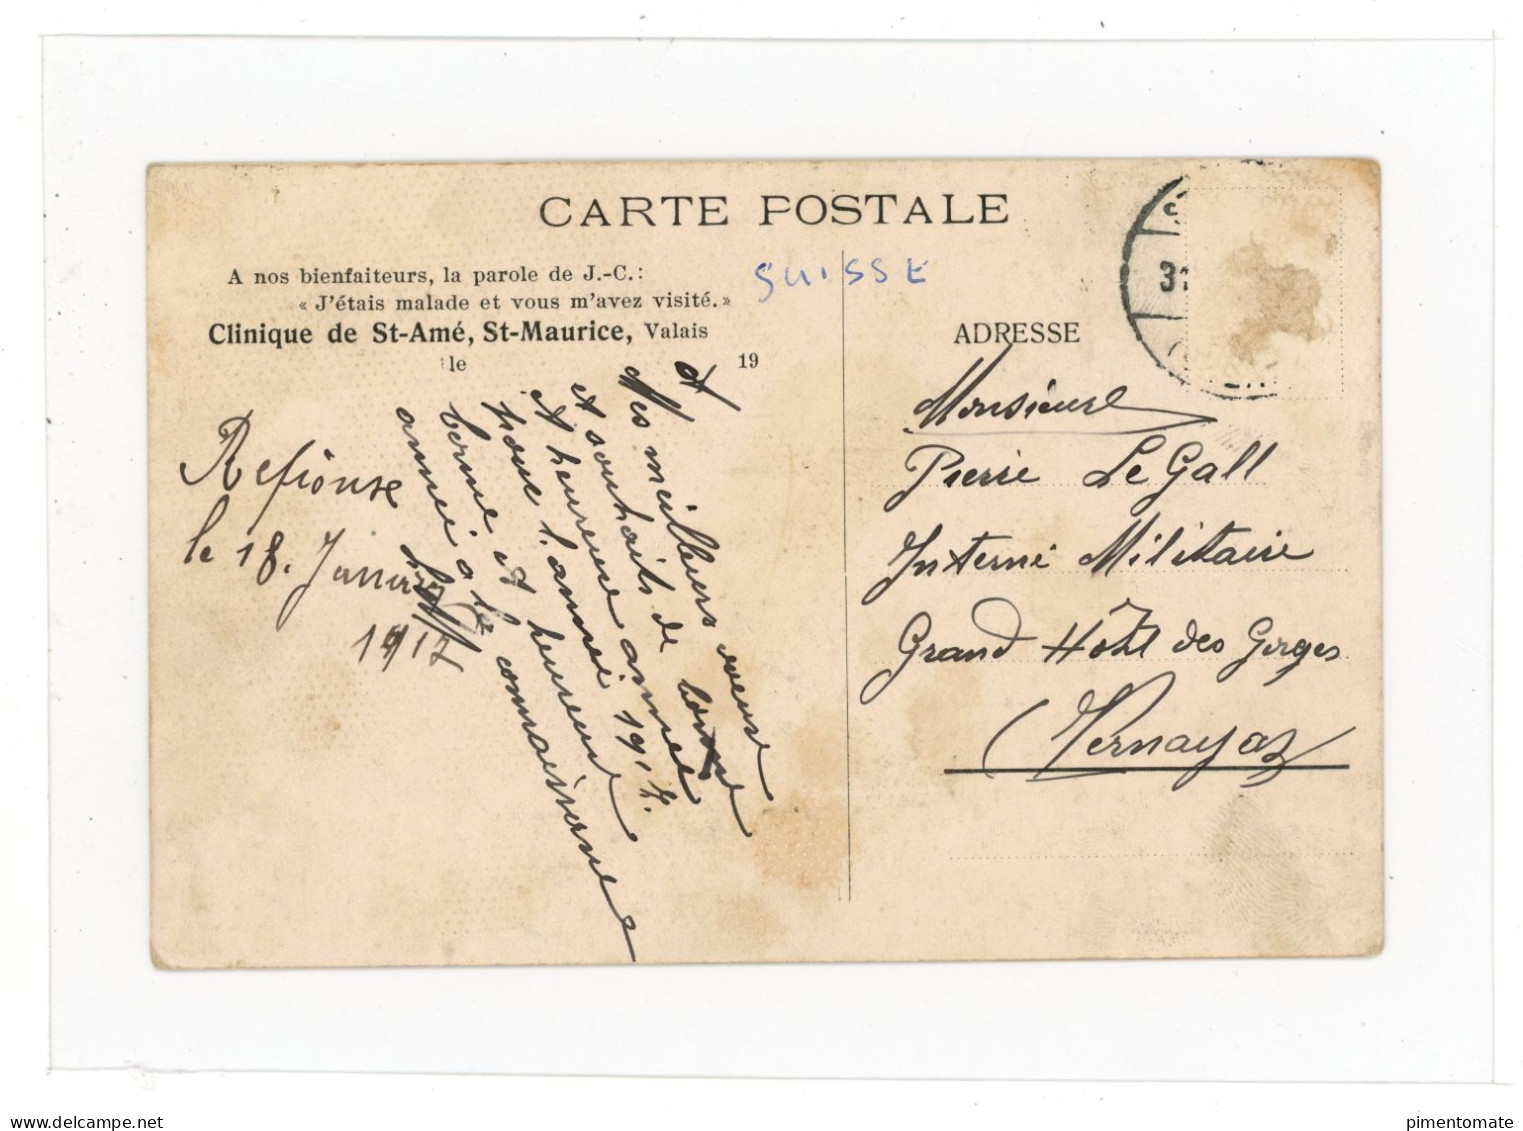 CARTE POSTALE
A nos bienfaiteurs, la parole de J.-C.:
« J'étais malade et vous m'avez visité.»
Clinique de St-Amé, St-Maurice, Valais
le 19
SUISSE
Mes meilleurs voeux
et souhaits de bonne
et heureuse année
pour l'année 1917.
bonne et heureuse
année a la connaissance
Refionse
le 18. Janvier
1917
31
ADRESSE
Monsieur
Pierre Le Gall
Interné Militaire
Grand Hôtel des Gorges
(Vernayaz
pimentomate